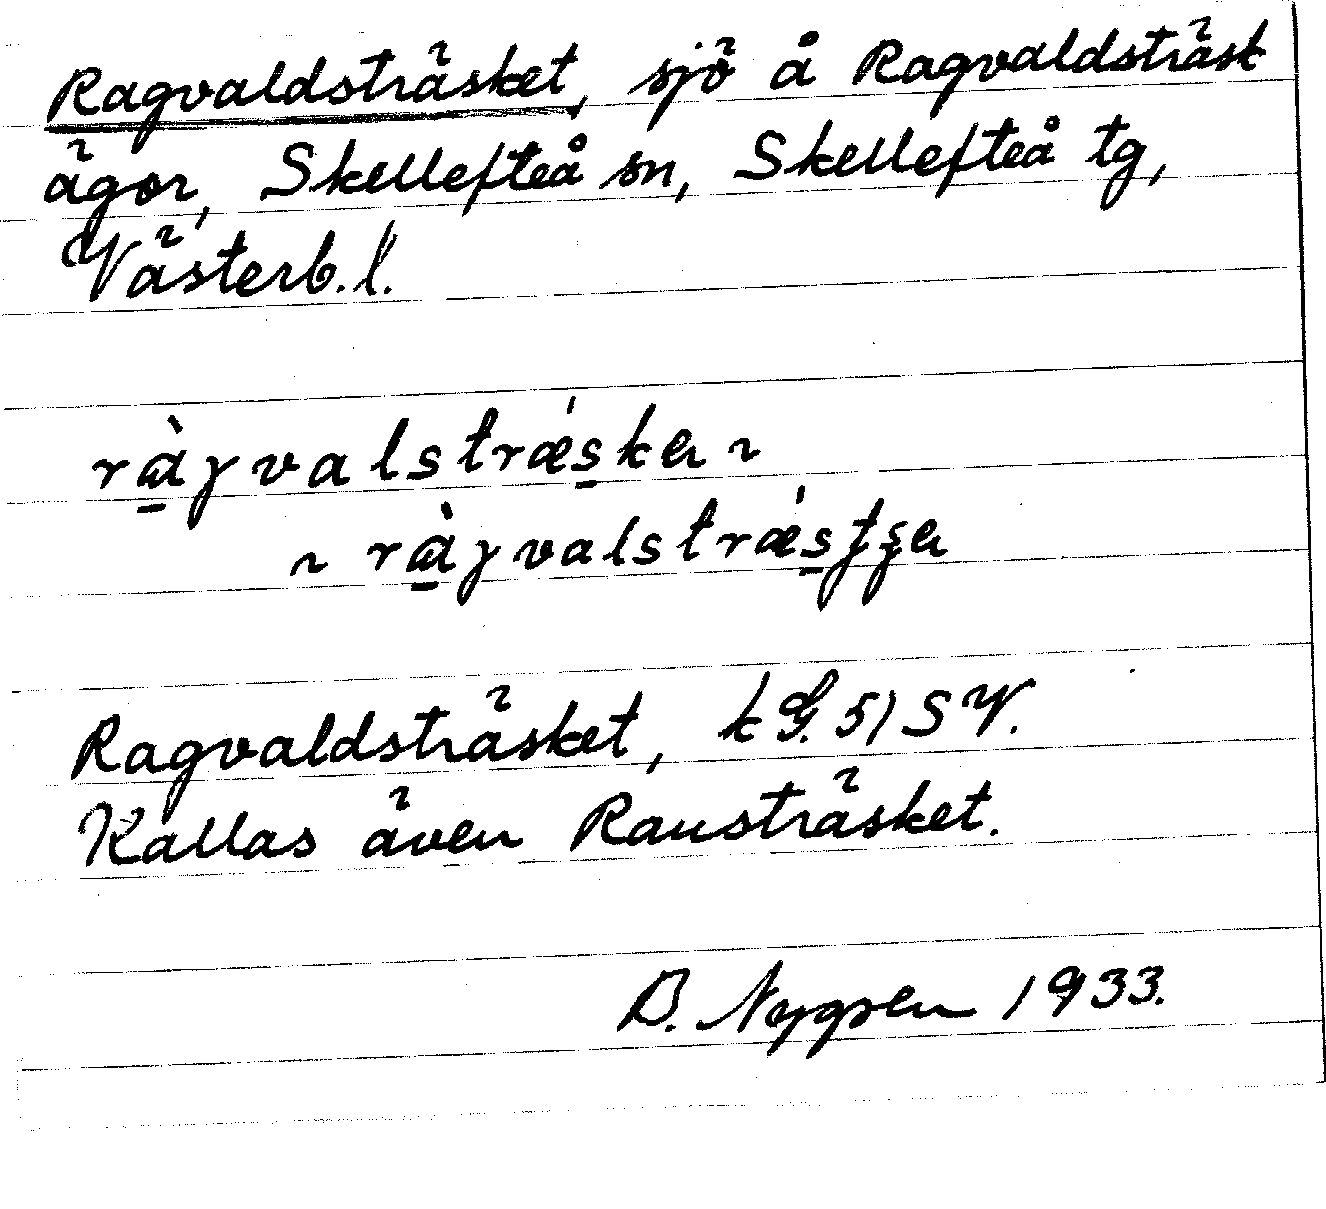 Ragvaldsträsket, sjö å Ragvaldsträsk
ägor, Skellefteå sn, Skellefteå tg,
Västerb. l.
rὰɣvalstrǽska ~
~ rὰɣvalstrǽsʈʂa
Ragvaldsträsket, k G. 51 SV.
Kallas även Rausträsket.
B. Nygren 1933.